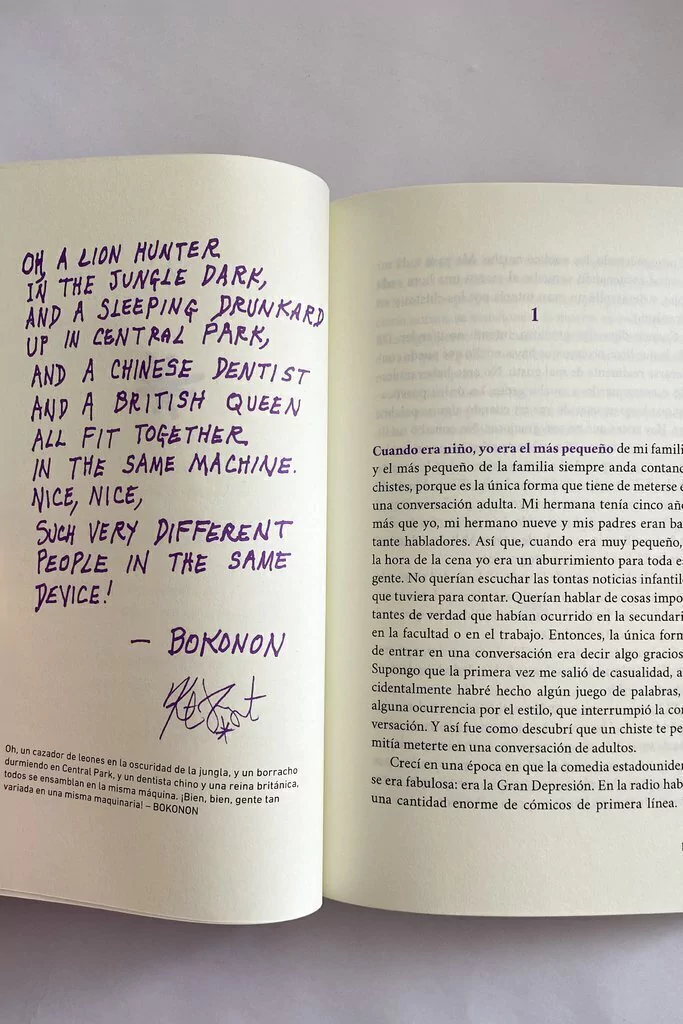 OH A LION HUNTER
IN THE JUNGLE DARK,
AND A SLEEPING DRUNKARD
UP IN CENTRAL PARK,
AND A CHINESE DENTIST
AND A BRITISH QUEEN
ALL FIT TOGETHER
IN THE SAME MACHINE.
NICE, NICE,
SUCH VERY DIFFERENT
PEOPLE IN THE SAME
DEVICE!
— BOKONON
Oh, un cazador de leones en la oscuridad de la jungla, y un borracho
durmiendo en Central Park, y un dentista chino y una reina británica,
todos se ensamblan en la misma máquina. ¡Bien, bien, gente tan
variada en una misma maquinaria! – BOKONON
1
Cuando era niño, yo era el más pequeño de mi famili
y el más pequeño de la familia siempre anda contand
chistes, porque es la única forma que tiene de meterse e
una conversación adulta. Mi hermana tenía cinco año
más que yo, mi hermano nueve y mis padres eran ba
tante habladores. Así que, cuando era muy pequeño,
la hora de la cena yo era un aburrimiento para toda es
gente. No querían escuchar las tontas noticias infantil
que tuviera para contar. Querían hablar de cosas impo
tantes de verdad que habían ocurrido en la secundari
en la facultad o en el trabajo. Entonces, la única form
de entrar en una conversación era decir algo gracios
Supongo que la primera vez me salió de casualidad, a
cidentalmente habré hecho algún juego de palabras,
alguna ocurrencia por el estilo, que interrumpió la con
versación. Y así fue como descubrí que un chiste te pe
mitía meterte en una conversación de adultos.
Crecí en una época en que la comedia estadouniden
se era fabulosa: era la Gran Depresión. En la radio hab
una cantidad enorme de cómicos de primera línea.